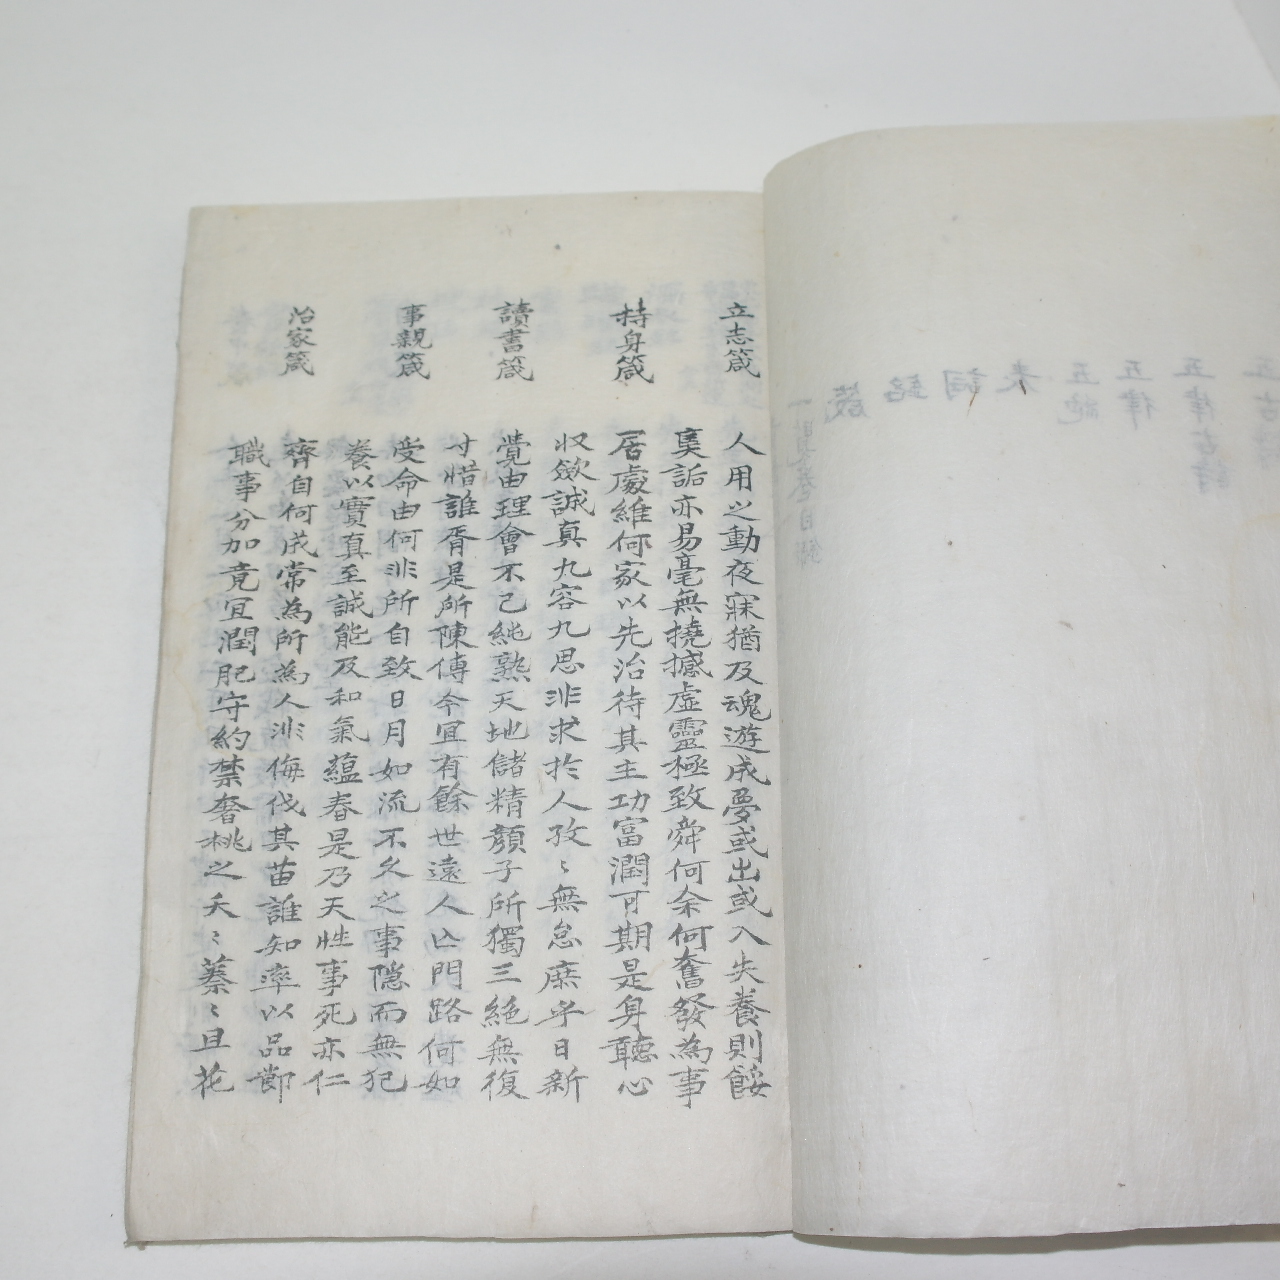 立志箴
人用之動夜寐猶及魂遊成夢或出或入失養則餒
奚詬亦易毫無撓撼虛靈極致舜何余何奮發為事
持身箴
居處維何家以先治待其主功富潤可期是身聽心
収斂誠真九容九思非求於人孜〻無怠庶乎日新
讀書箴
覺由理會不已純熟天地儲精顏子所獨三絕無復
寸惜誰胥是所陳傳今宜有餘世遠人亡門路何如
事親箴
受命由何非所自致日月如流不久之事隱而無犯
養以實真至誠能及和氣蘊春是乃天性事死亦仁
治家箴
齊自何成常為所為人非侮伐其苗誰知率以品節
職事分加竟宜潤肥守約禁奢桃之夭〻蓁〻且花